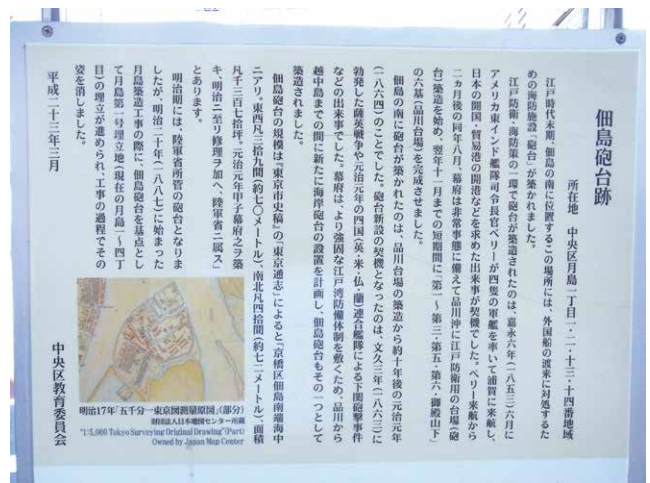 佃島砲台跡
所在地　中央区月島一丁目一・二・十三・十四番地域
江戸時代末期、佃島の南に位置するこの場所には、外国船の渡来に対処するた
めの海防施設「砲台」が築かれました。
江戸防衛・海防策の一環で砲台が築造されたのは、嘉永六年（一八五三）六月に
アメリカ東インド艦隊司令長官ペリーが四隻の軍艦を率いて浦賀に来航し、
日本の開国・貿易港の開港などを求めた出来事が契機でした。ペリー来航から
二ヵ月後の同年八月、幕府は非常事態に備えて品川沖に江戸防衛用の台場（砲
台）築造を始め、翌年十一月までの短期間に「第一～第三・第五・第六・御殿山下」
の六基（品川台場）を完成させました。
佃島の南に砲台が築かれたのは、品川台場の築造から約十年後の元治元年
（一八六四）のことでした。砲台新設の契機となったのは、文久三年（一八六三）に
勃発した薩英戦争や元治元年の四国（英・米・仏・蘭）連合艦隊による下関砲撃事件
などの出来事でした。幕府は、より強固な江戸湾防備体制を敷くため、品川から
越中島までの間に新たに海岸砲台の設置を計画し、佃島砲台もその一つとして
築造されました。
佃島砲台の規模は『東京市史稿』の「東京通志」によると「京橋区佃島南端海中
ニアリ。東西凡三拾九間（約七〇メートル）、南北凡四拾間（約七二メートル）、面積
凡千三百七拾坪。元治元年甲子幕府之ヲ築
キ、明治ニ至リ修理ヲ加ヘ、陸軍省ニ属ス」
とあります。
明治期には、陸軍省所管の砲台となりま
したが、明治二十年（一八八七）に始まった
月島築造工事の際に、佃島砲台を基点とし
て月島第一号埋立地（現在の月島一～四丁
目）の埋立が進められ、工事の過程でその
姿を消しました。
平成二十三年三月
中央区教育委員会
明治17年「五千分一東京図測量原図」（部分）
財団法人日本地図センター所蔵
"1:5,000 Tokyo Surveying Original Drawing"(Part)
Owned by Japan Map Center